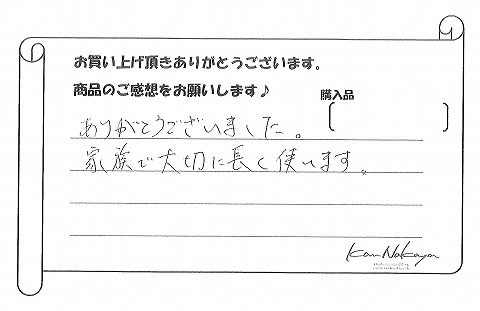 お買い上げ頂きありがとうございます。
商品のご感想をお願いします♪
購入品
ありがとうございました。
家族で大切に長く使います。
Kan Nakaya